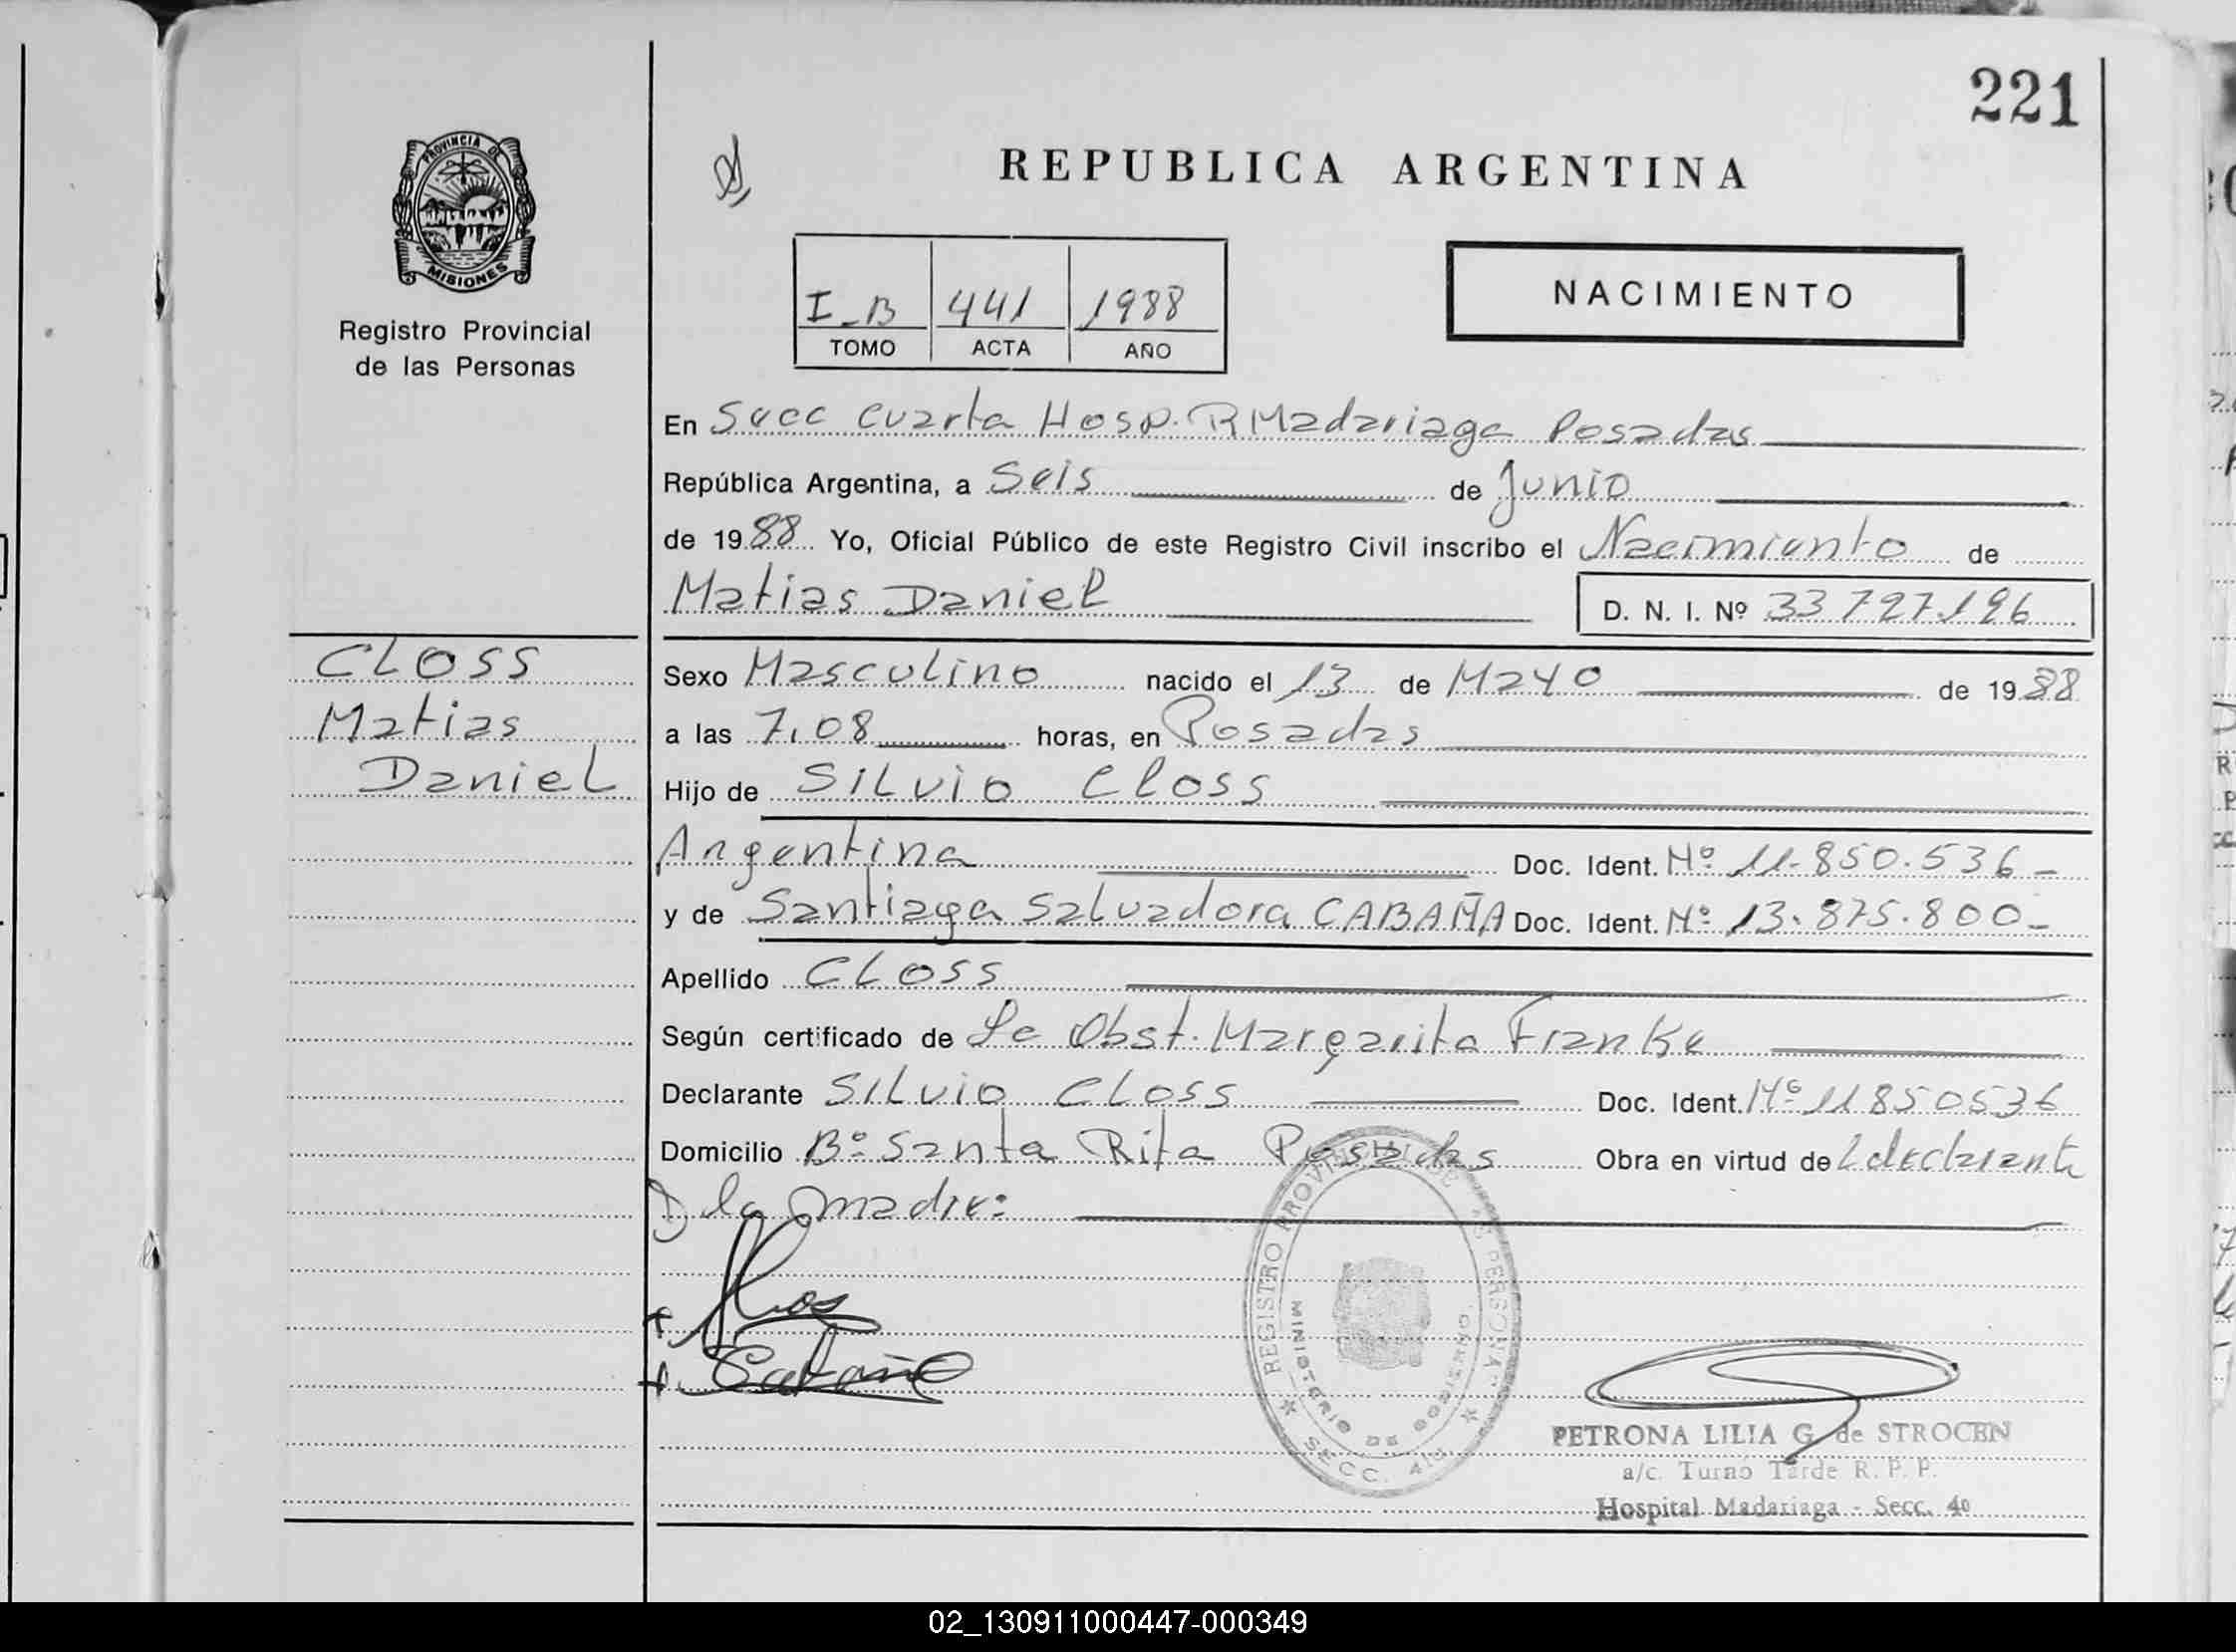 221
PROVINCIA DE
MISIONES
Registro Provincial
de las Personas
REPUBLICA ARGENTINA
I_B 441 1988
TOMO ACTA AÑO
NACIMIENTO
En Secc Cuarta Hosp. R Madariaga Posadas
República Argentina, a Seis de Junio
de 1988 Yo, Oficial Público de este Registro Civil inscribo el Nacimiento de
Matias Daniel D. N. I. Nº 33 727.196
CLOSS
Matias
Daniel
Sexo Masculino nacido el 13 de Mayo de 1988
a las 7,08 horas, en Posadas
Hijo de SILVIO Closs
Argentina Doc. Ident. Nº 11.850.536-
y de Santiaga Salvadora CABAÑA Doc. Ident. Nº 13.875.800-
Apellido CLOSS
Según certificado de La Obst. Margarita Franke
Declarante SILVIO CLOSS Doc. Ident. Nº 11850536
Domicilio Bº Santa Rita Posadas Obra en virtud de declarante
la madre:
REGISTRO PROVINCIAL DE LAS PERSONAS
MINISTERIO DE GOBIERNO
SECC. 4ta
PETRONA LILIA G. de STROCEN
a/c. Turno Tarde R. P. P.
Hospital Madariaga - Secc. 4º
02_130911000447-000349